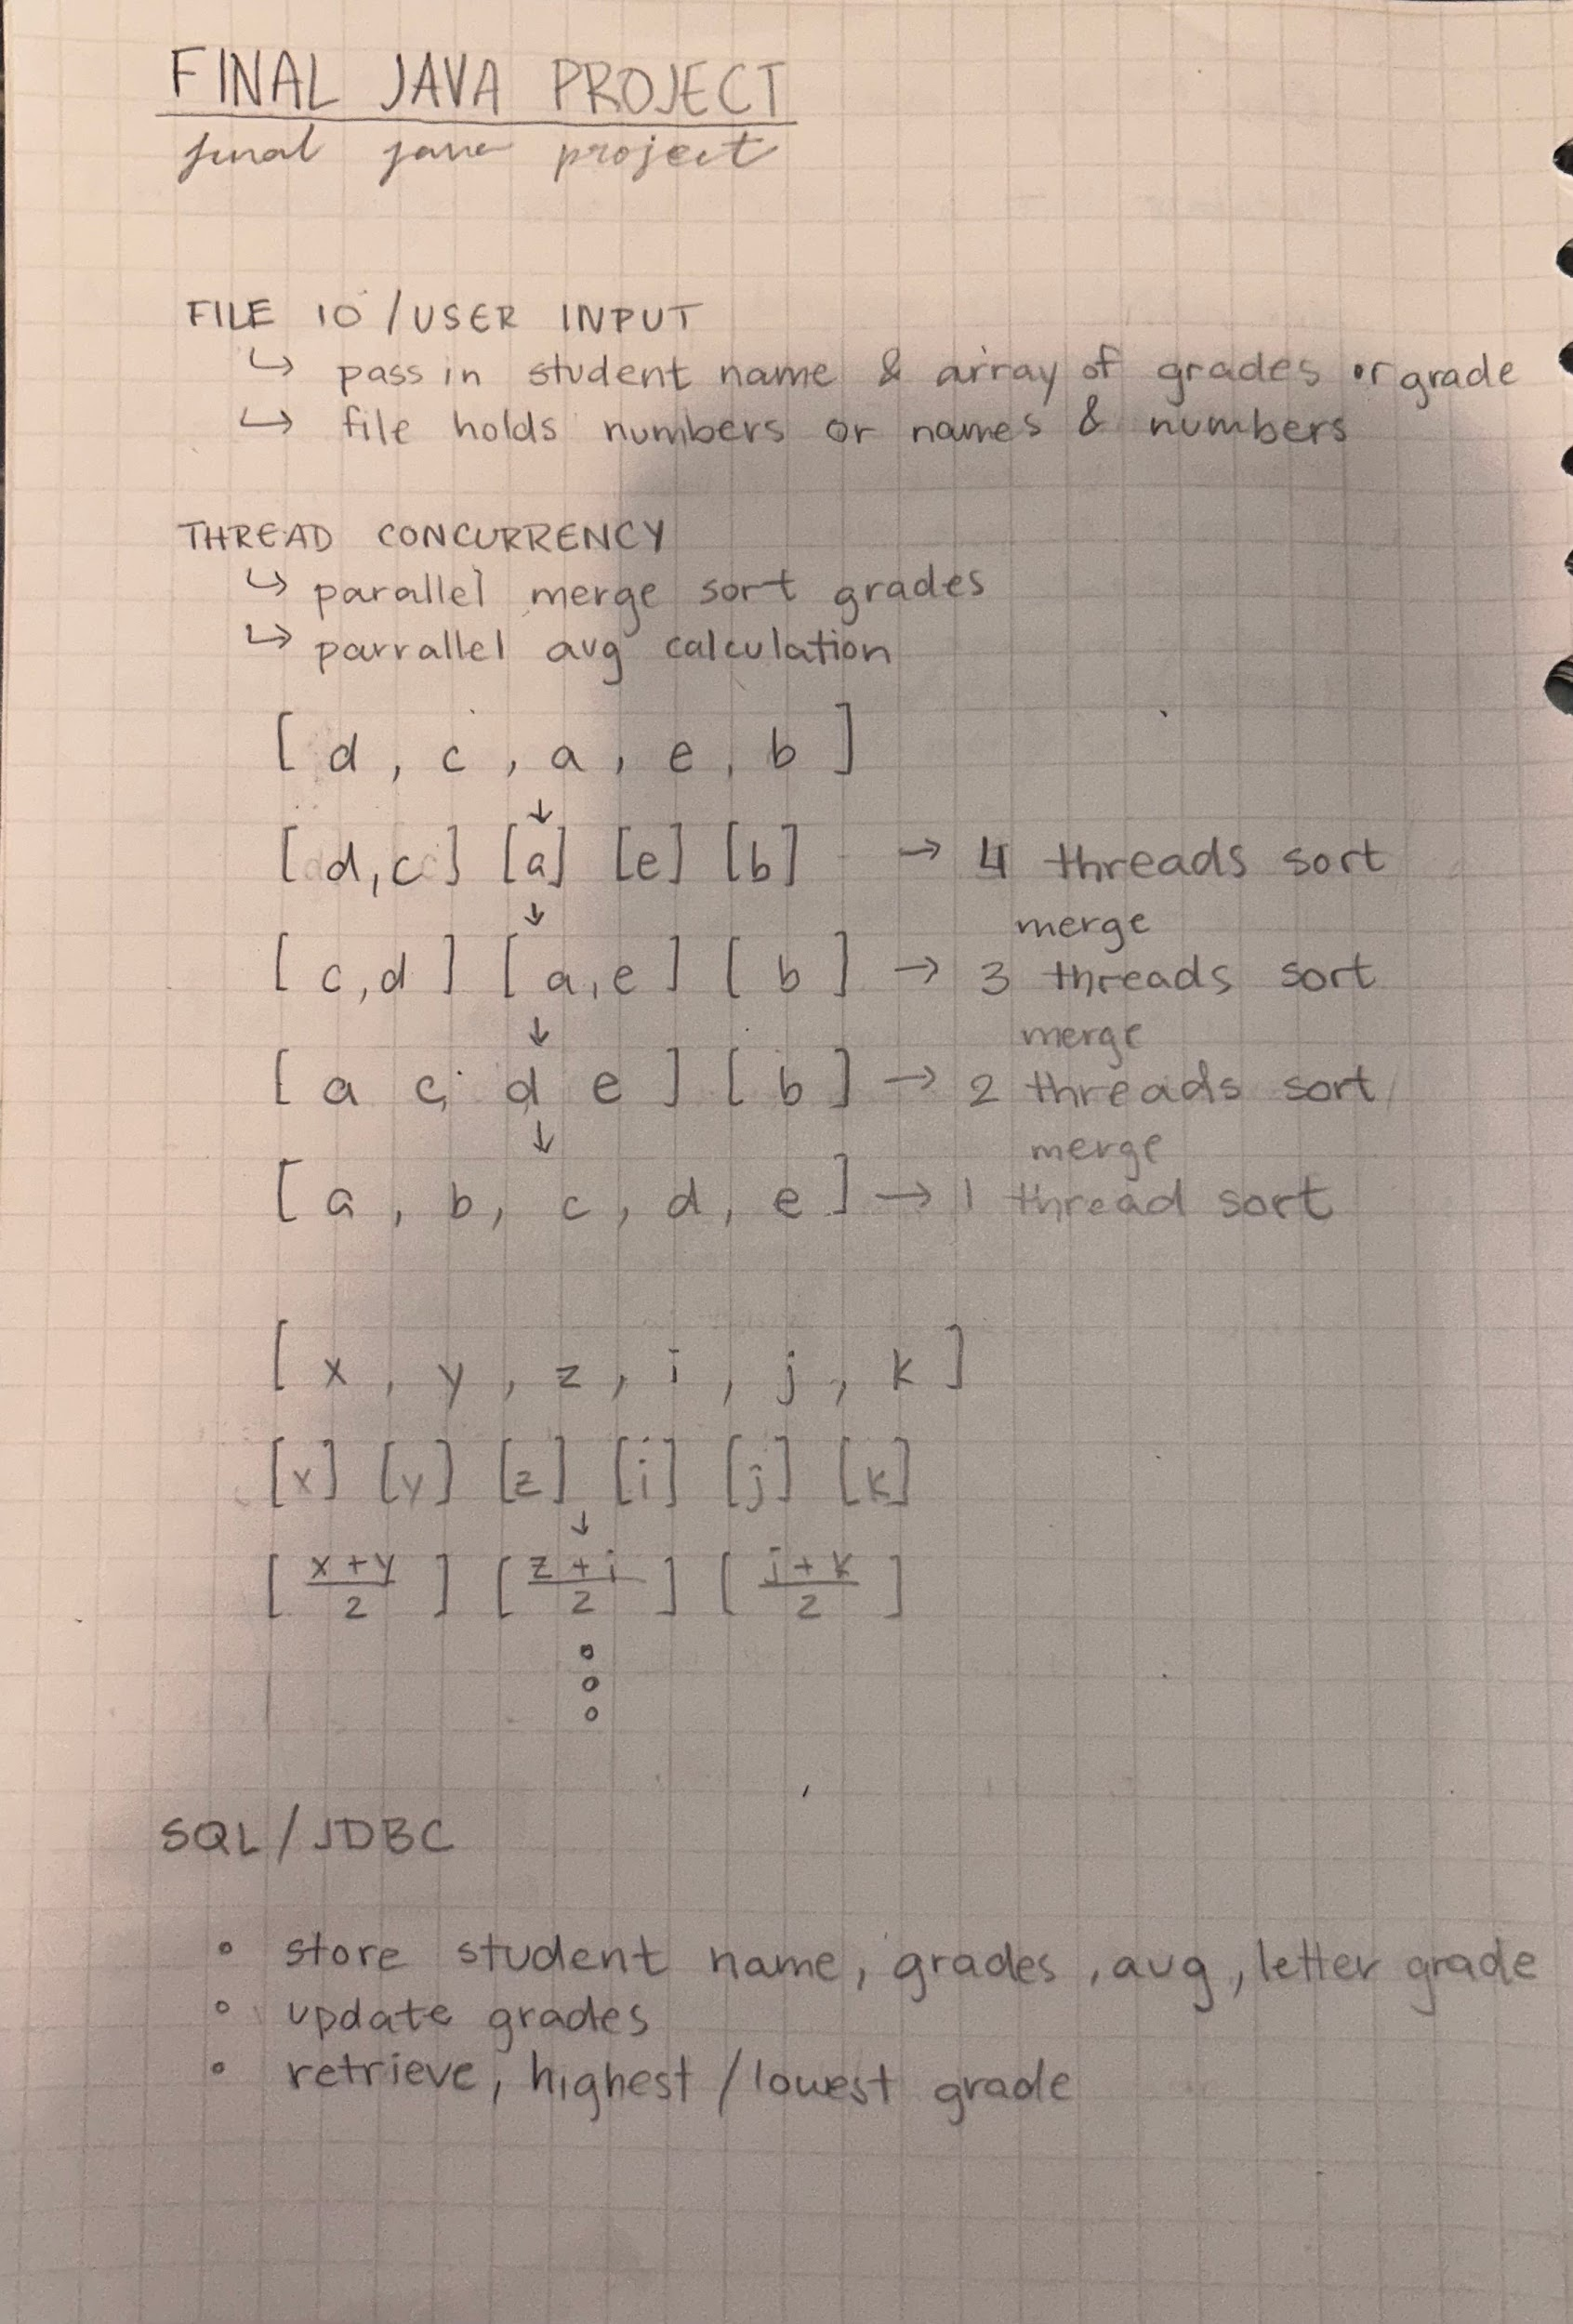 FINAL JAVA PROJECT
final java project
FILE IO / USER INPUT
↳ pass in student name & array of grades or grade
↳ file holds numbers or names & numbers
THREAD CONCURRENCY
↳ parallel merge sort grades
↳ parrallel avg calculation
[ d , c , a , e , b ]
↓
[ d,c ] [a] [e] [b] → 4 threads sort
↓ merge
[ c,d ] [ a,e ] [ b ] → 3 threads sort
↓ merge
[ a c, d e ] [ b ] → 2 threads sort
↓ merge
[ a , b , c , d , e ] → 1 thread sort
[ x , y , z , i , j , k ]
[x] [y] [z] [i] [j] [k]
↓
[ x+y/2 ] [ z+i/2 ] [ j+k/2 ]
SQL / JDBC
◦ store student name, grades, avg, letter grade
◦ update grades
◦ retrieve, highest / lowest grade